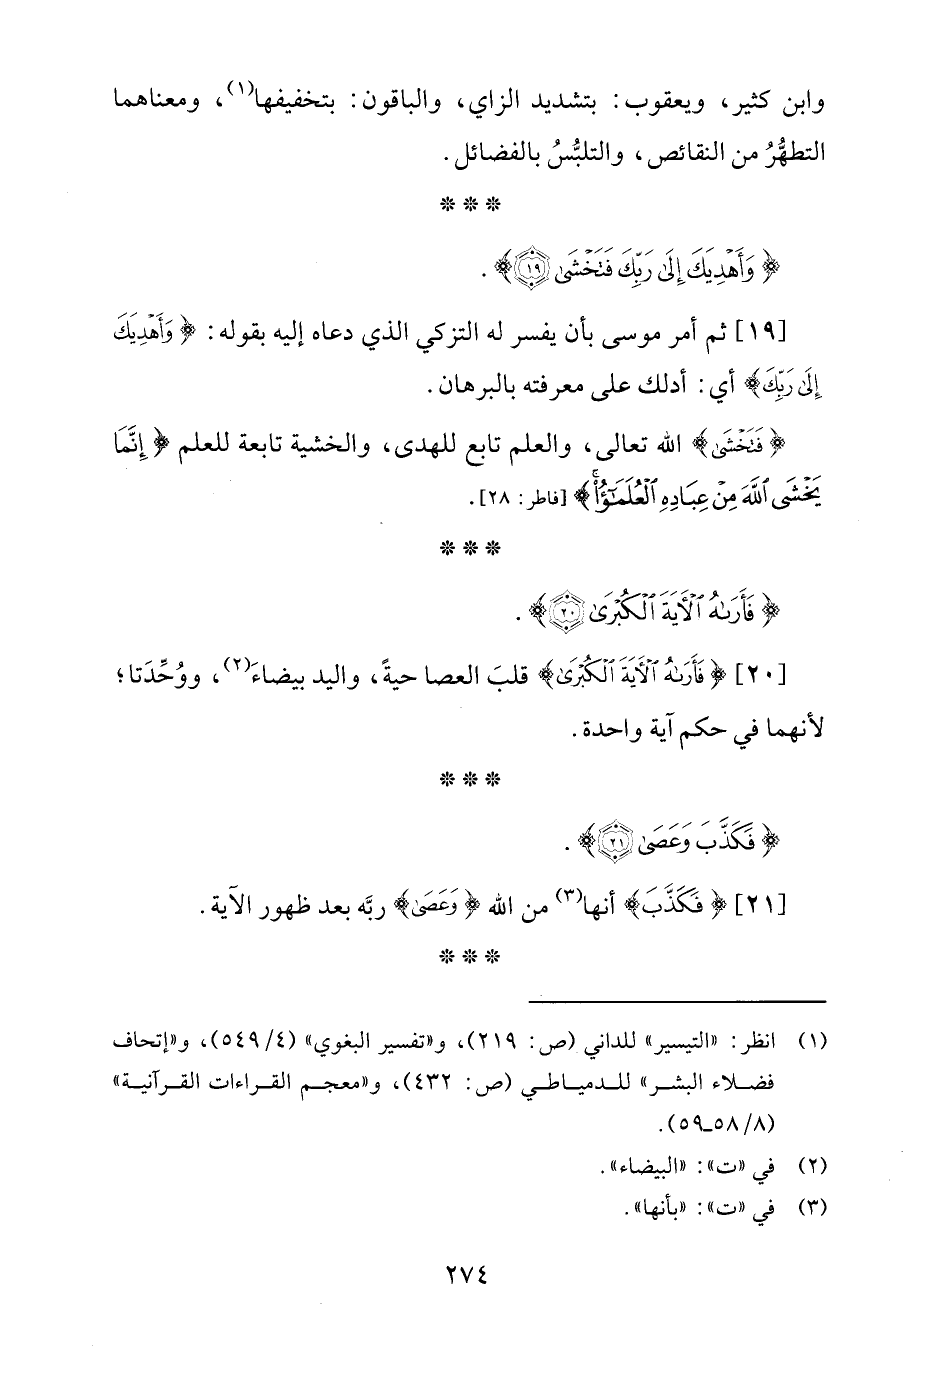 وابن كثير، ويعقوب: بتشديد الزاي، والباقون: بتخفيفها(١)، ومعناهما
التطهُّرُ من النقائص، والتلبُّسُ بالفضائل.
* * *
﴿وَأَهْدِيَكَ إِلَىٰ رَبِّكَ فَتَخْشَىٰ ١٩﴾.
[١٩] ثم أمر موسى بأن يفسر له التزكي الذي دعاه إليه بقوله: ﴿وَأَهْدِيَكَ
إِلَىٰ رَبِّكَ﴾ أي: أدلك على معرفته بالبرهان.
﴿فَتَخْشَىٰ﴾ الله تعالى، والعلم تابع للهدى، والخشية تابعة للعلم ﴿إِنَّمَا
يَخْشَى ٱللَّهَ مِنْ عِبَادِهِ ٱلْعُلَمَٰٓؤُا۟ۗ﴾ [فاطر: ٢٨].
* * *
﴿فَأَرَىٰهُ ٱلْأَيَةَ ٱلْكُبْرَىٰ ٢٠﴾.
[٢٠] ﴿فَأَرَىٰهُ ٱلْأَيَةَ ٱلْكُبْرَىٰ﴾ قلبَ العصا حيةً، واليد بيضاءَ(٢)، ووُحِّدَتا؛
لأنهما في حكم آية واحدة.
* * *
﴿فَكَذَّبَ وَعَصَىٰ ٢١﴾.
[٢١] ﴿فَكَذَّبَ﴾ أنها(٣) من الله ﴿وَعَصَىٰ﴾ ربَّه بعد ظهور الآية.
* * *
(١) انظر: «التيسير» للداني (ص: ٢١٩)، و«تفسير البغوي» (٤/ ٥٤٩)، و«إتحاف
فضلاء البشر» للدمياطي (ص: ٤٣٢)، و«معجم القراءات القرآنية»
(٨/ ٥٨ـ٥٩).
(٢) في «ت»: «البيضاء».
(٣) في «ت»: «بأنها».
٢٧٤